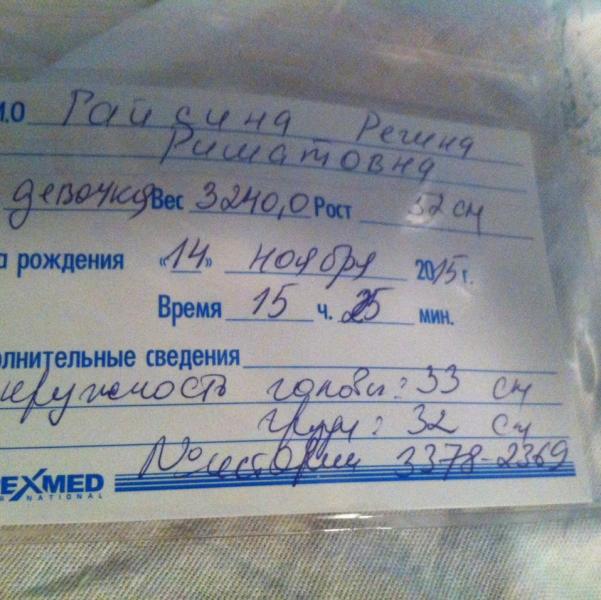 И.О Гайсина Регина
Риматовна
девочка Вес 3240,0 Рост 52 см
а рождения «14» ноября 2015 г.
Время 15 ч. 25 мин.
олнительные сведения
окружность головы: 33 см
груди: 32 см
№ истории 3378-2369
EXMED
NATIONAL